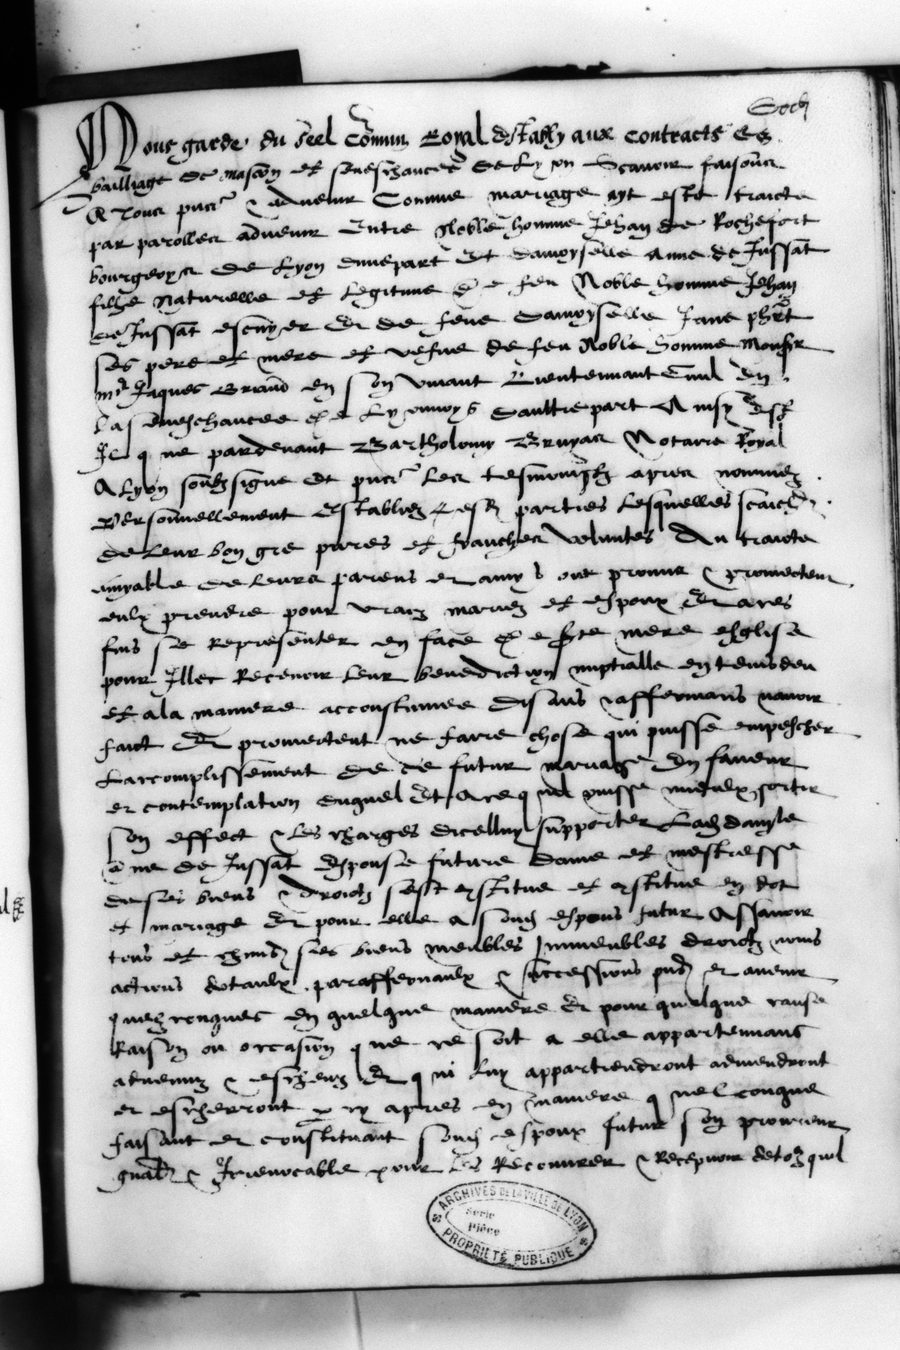 Nous garde du seel commun Royal establly aux contractz es
bailliage de mascon et seneschaucee de Lyon Scavoir faisons
A tous pns & advenir Comme mariage ayt este traicte
par parolles advenir Entre Noble homme Jehan de Rochefort
bourgeoys de Lyon dunepart Et damoyselle Anne de Jussat
fille naturelle et legitime de feu Noble homme Jehan
de Jussat escuyer Et de feue damoyselle Jane
ses pere et mere et vefue de feu Noble homme Monsr
mre Jaques Briand en son vivant Lieutennant Civil En
La seneschaucee de Lyonnoys daultrepart Ainsy est
Il que pardevant Bartholomy Bruyas Notaire Royal
A Lyon soubzsigne Et pns Les tesmoingz apres nommez
Personnellement Establiz lesd parties Lesquelles
de leur bon gre pures et franches voluntes Au traicte
amyable de leurs parens et amys ont promis & promectent
eulx prendre pour vraiz mariez et espoux Et a ces
fins se representer en face de ste mere esglise
pour Illec Recevoir leur benediction nuptialle en temsdeu
et a la maniere accoustumee disans & affermans navoir
faict Et promectent ne faire chose qui puisse empescher
Laccomplissement de ce futur mariage En faveur
et contemplation duquel Et Ace quil puisse mieulx sortir
son effect & Les charges dicelluy supporter Lad damyle
Anne de Jussat Espouse future dame et mestresse
de ses biens & droictz sest constitue et constitue en dot
et mariage Et pour elle a sond espous futur Assavoir
tous et chuns ses biens meubles Immeubles droictz noms
actions dotaulx paraffernaulx & successions pns et avenir
quelzconques en quelque maniere Et pour quelque cause
Raison ou occasion que ce soit a elle appartennans
advenuz & escheuz Et qui luy appartiendront adviendront
et escherront cy apres en maniere quelconque
faisant et constituant sond espoux futur son procureur
gnal & Irrevocable pour Les Recouvrer & Recepvoir detoz quil
ARCHIVES DE LA VILLE DE LYON
Serie
Pièce
PROPRIÉTÉ PUBLIQUE